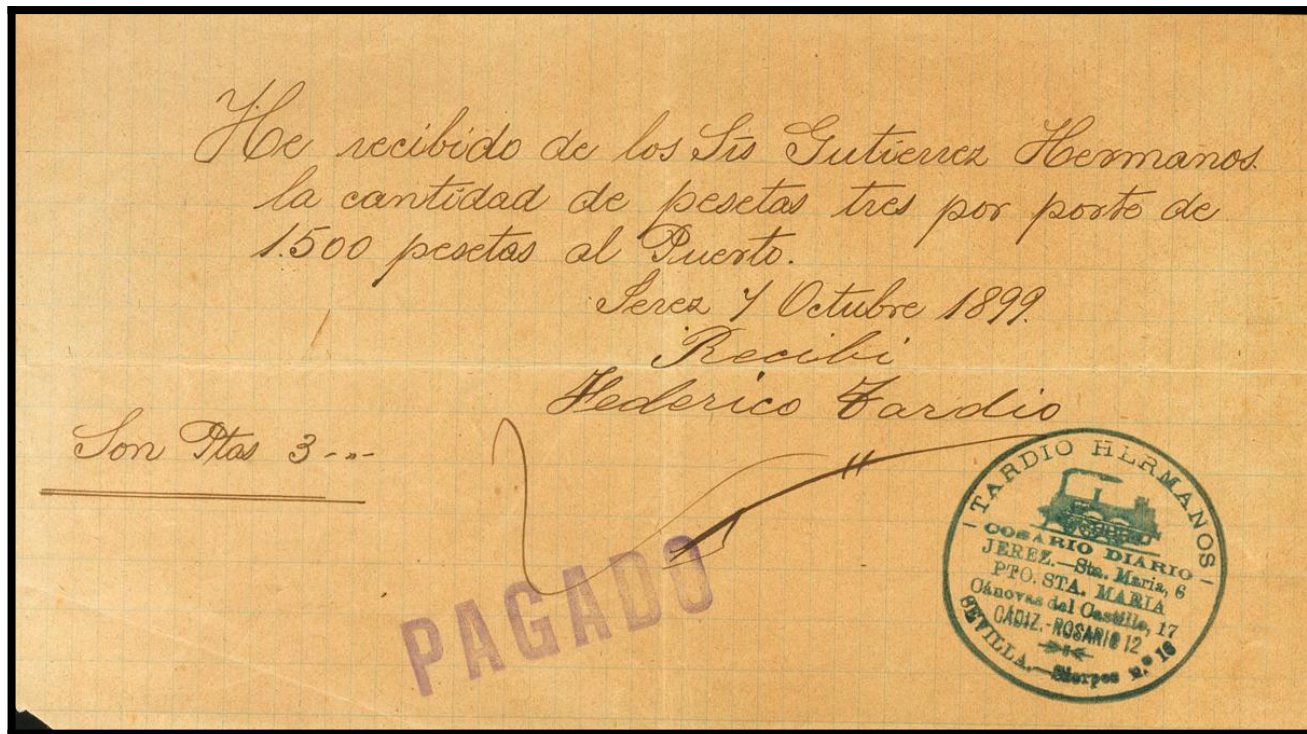 He recibido de los Srs Gutierrez Hermanos.
la cantidad de pesetas tres por porte de
1.500 pesetas al Puerto.
Jerez 7 Octubre 1899.
Recibi
Federico Tardio
Son Ptas 3-"-
PAGADO
TARDIO HERMANOS
COSARIO DIARIO
JEREZ.—Sta. Maria, 6
PTO. STA. MARIA
Cánovas del Castillo, 17
CADIZ.-ROSARIO 12
SEVILLA.—Sierpes n.º 16